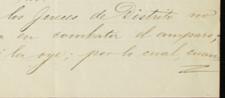 los Jueces de Distrito no
en combatir el amparo,
la oye; por lo cual, cuan